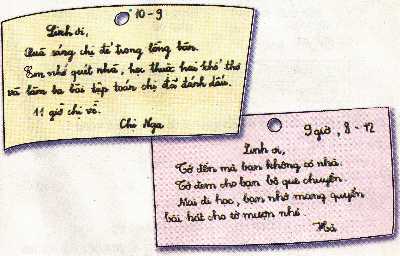 10 - 9
Linh ơi,
Quà sáng chị để trong lồng bàn.
Em nhớ quét nhà, học thuộc hai khổ thơ
và làm ba bài tập toán chị đã đánh dấu.
11 giờ chị về.
Chị Nga
9 giờ, 8 - 12
Linh ơi,
Tớ đến mà bạn không có nhà.
Tớ đem cho bạn bộ que chuyền.
Mai đi học, bạn nhớ mang quyển
bài hát cho tớ mượn nhé.
Hà